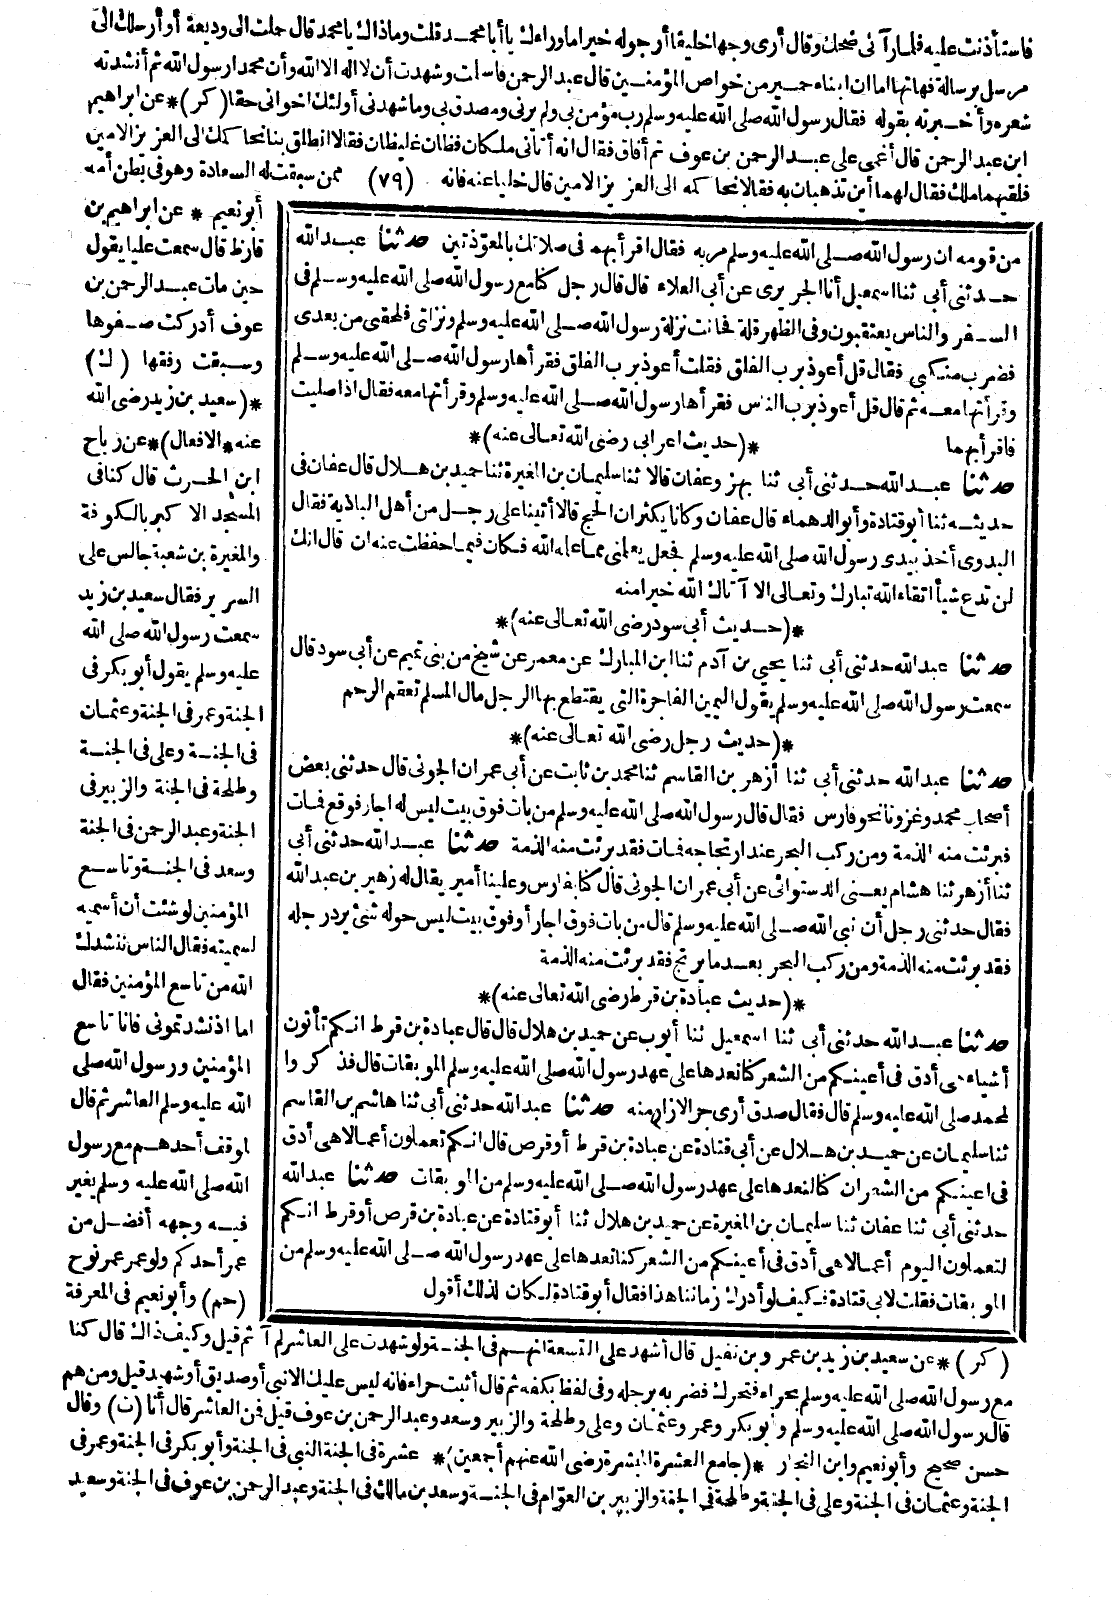 فاستأذنت عليه فلما رآنى ضحك وقال أرى وجها خليقا أرجو له خيرا ما وراءك يا أبا محمد قلت وما ذاك يا محمد قال حملت الى وديعة أو أرسلك الى
مرسل برسالة فهاتها أما ان ابناء حمير من خواص المؤمنين قال عبد الرحمن فأسلمت وشهدت أن لا اله الا الله وأن محمدا رسول الله ثم أنشدته
شعره وأخبرته بقوله فقال رسول الله صلى الله عليه وسلم رب مؤمن بى ولم يرنى ومصدق بى وما شهدنى أولئك اخوانى حقا (كر) * عن ابراهيم
ابن عبد الرحمن قال أغمى على عبد الرحمن بن عوف ثم أفاق فقال انه أتانى ملكان فظان غليظان فقالا انطلق بنا نحاكمك الى العزيز الامين
فلقيهما ملك فقال لهما أين تذهبان به فقالا نحاكمه الى العزيز الامين قال خليا عنه فانه (٧٩) ممن سبقت له السعادة وهو فى بطن أمه
من قومه ان رسول الله صلى الله عليه وسلم مر به فقال اقرأ بهما فى صلاتك بالمعوذتين حدثنا عبد الله
حدثنى أبى ثنا اسمعيل أنا الجريرى عن أبى العلاء قال قال رجل كنا مع رسول الله صلى الله عليه وسلم فى
السفر والناس يعتقبون وفى الظهر قلة فحانت نزلة رسول الله صلى الله عليه وسلم ونزلتى فلحقنى من بعدى
فضرب منكبى فقال قل أعوذ برب الفلق فقلت أعوذ برب الفلق فقرأها رسول الله صلى الله عليه وسلم
وقرأتها معه ثم قال قل أعوذ برب الناس فقرأها رسول الله صلى الله عليه وسلم وقرأتها معه فقال اذا صليت
فاقرأ بهما *(حديث اعرابى رضى الله تعالى عنه)*
حدثنا عبد الله حدثنى أبى ثنا بهز وعفان قالا ثنا سليمان بن المغيرة ثنا حميد بن هلال قال عفان فى
حديثه ثنا أبو قتادة وأبو الدهماء قال عفان وكانا يكثران الحج قالا أتينا على رجل من أهل البادية فقال
البدوى أخذ بيدى رسول الله صلى الله عليه وسلم فجعل يعلمنى مما علمه الله فكان فيما حفظت عنه ان قال انك
لن تدع شيأ اتقاء الله تبارك وتعالى الا آتاك الله خيرا منه
*(حديث أبى سود رضى الله تعالى عنه)*
حدثنا عبد الله حدثنى أبى ثنا يحيى بن آدم ثنا ابن المبارك عن معمر عن شيخ من بنى تميم عن أبى سود قال
سمعت رسول الله صلى الله عليه وسلم يقول اليمين الفاجرة التى يقتطع بها الرجل مال المسلم تعقم الرحم
*(حديث رجل رضى الله تعالى عنه)*
حدثنا عبد الله حدثنى أبى ثنا أزهر بن القاسم ثنا محمد بن ثابت عن أبى عمران الجونى قال حدثنى بعض
أصحاب محمد وغزونا نحو فارس فقال قال رسول الله صلى الله عليه وسلم من بات فوق بيت ليس له اجار فوقع فمات
فبرئت منه الذمة ومن ركب البحر عند ارتجاجه فمات فقد برئت منه الذمة حدثنا عبد الله حدثنى أبى
ثنا أزهر ثنا هشام يعنى الدستوائى عن أبى عمران الجونى قال كنا بفارس وعلينا أمير يقال له زهير بن عبد الله
فقال حدثنى رجل أن نبى الله صلى الله عليه وسلم قال من بات فوق اجار أو فوق بيت ليس حوله شئ يرد رجله
فقد برئت منه الذمة ومن ركب البحر بعد ما يرتج فقد برئت منه الذمة
*(حديث عبادة بن قرط رضى الله تعالى عنه)*
حدثنا عبد الله حدثنى أبى ثنا اسمعيل ثنا أيوب عن حميد بن هلال قال قال عبادة بن قرط انكم تأتون
أشياء هى أدق فى أعينكم من الشعر كنا نعدها على عهد رسول الله صلى الله عليه وسلم الموبقات قال فذكروا
لمحمد صلى الله عليه وسلم قال فقال صدق أرى جر الازار منه حدثنا عبد الله حدثنى أبى ثنا هاشم بن القاسم
ثنا سليمان عن حميد بن هلال عن أبى قتادة عن عبادة بن قرط أو قرص قال انكم تعملون أعمالا هى أدق
فى اعينكم من الشعر ان كنا لنعدها على عهد رسول الله صلى الله عليه وسلم من الموبقات حدثنا عبد الله
حدثنى أبى ثنا عفان ثنا سليمان بن المغيرة عن حميد بن هلال ثنا أبو قتادة عن عبادة بن قرص أو قرط انكم
لتعملون اليوم أعمالا هى أدق فى أعينكم من الشعر كنا نعدها على عهد رسول الله صلى الله عليه وسلم من
الموبقات فقلت لابى قتادة فكيف لو أدرك زماننا هذا فقال أبو قتادة لكان لذلك أقول
أبو نعيم * عن ابراهيم بن
قارظ قال سمعت عليا يقول
حين مات عبد الرحمن بن
عوف أدركت صفوها
وسبقت رفقها (ك)
*(سعيد بن زيد رضى الله
عنه * الافعال)* عن رباح
ابن الحرث قال كنا فى
المسجد الاكبر بالكوفة
والمغيرة بن شعبة جالس على
السرير فقال سعيد بن زيد
سمعت رسول الله صلى الله
عليه وسلم يقول أبو بكر فى
الجنة وعمر فى الجنة وعثمان
فى الجنة وعلى فى الجنة
وطلحة فى الجنة والزبير فى
الجنة وعبد الرحمن فى الجنة
وسعد فى الجنة وتاسع
المؤمنين لو شئت أن أسميه
لسميته فقال الناس ننشدك
الله من تاسع المؤمنين فقال
اما اذ نشدتمونى فانا تاسع
المؤمنين ورسول الله صلى
الله عليه وسلم العاشر ثم قال
لموقف أحدهم مع رسول
الله صلى الله عليه وسلم يغبر
فيه وجهه أفضل من
عمر أحدكم ولو عمر عمر نوح
(حم) وأبو نعيم فى المعرفة
(كر) * عن سعيد بن زيد بن عمرو بن نفيل قال أشهد على التسعة انهم فى الجنة ولو شهدت على العاشر لم آثم قيل وكيف ذاك قال كنا
مع رسول الله صلى الله عليه وسلم بحراء فتحرك فضربه برجله وفى لفظ بكفه ثم قال أثبت حراء فانه ليس عليك الا نبى أو صديق أو شهيد قيل ومن هم
قال رسول الله صلى الله عليه وسلم وأبو بكر وعمر وعثمان وعلى وطلحة والزبير وسعد وعبد الرحمن بن عوف قيل فمن العاشر قال أنا (ت) وقال
حسن صحيح وأبو نعيم وابن النجار *(جامع العشرة المبشرة رضى الله عنهم أجمعين)* عشرة فى الجنة النبى فى الجنة وأبو بكر فى الجنة وعمر فى
الجنة وعثمان فى الجنة وعلى فى الجنة وطلحة فى الجنة والزبير بن العوام فى الجنة وسعد بن مالك فى الجنة وعبد الرحمن بن عوف فى الجنة وسعيد